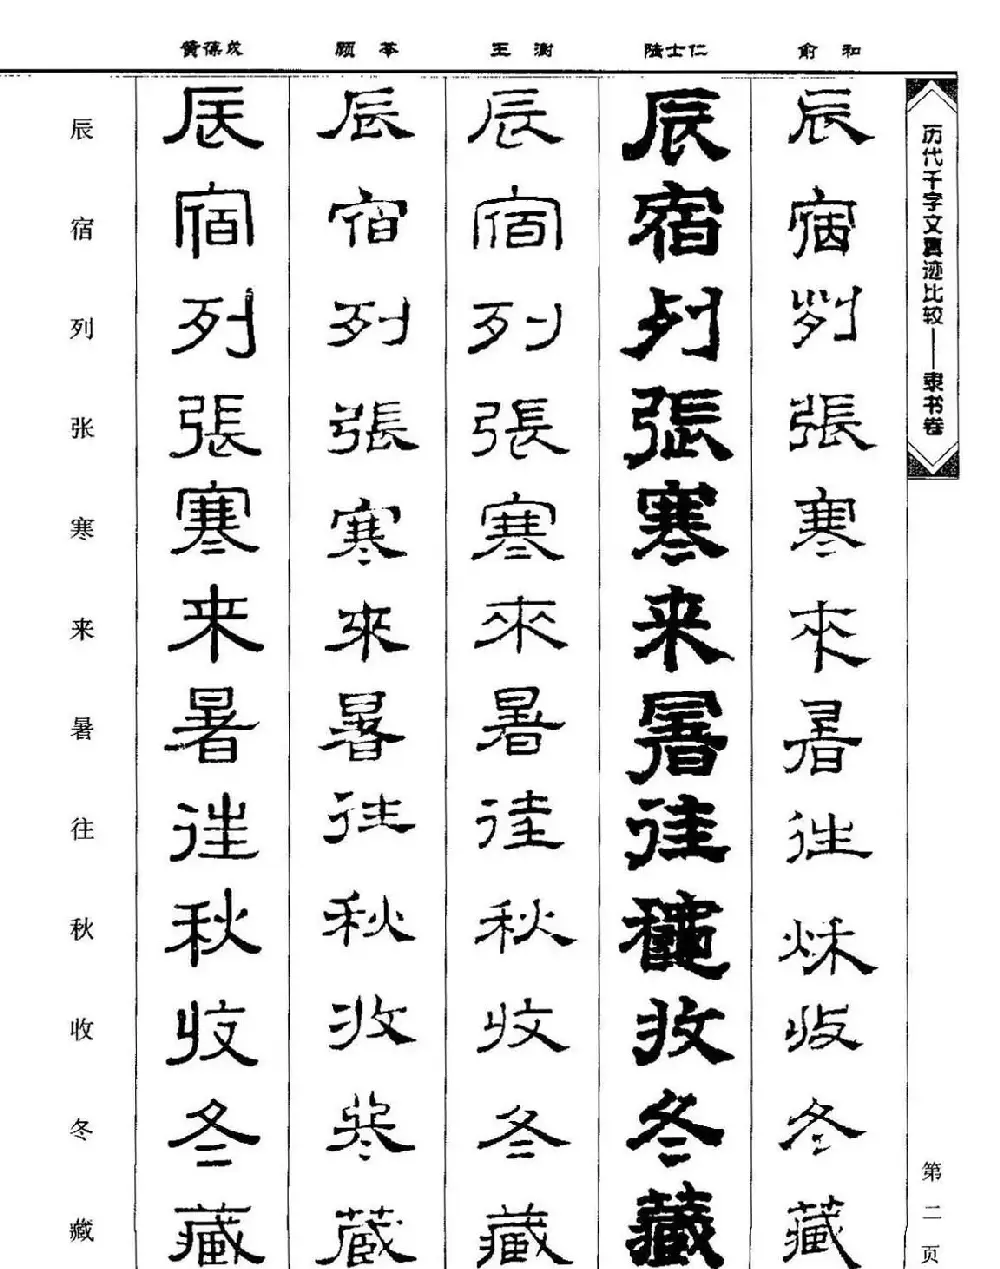 俞和
陆士仁
王澍
顾苓
黄葆戉
历代千字文真迹比较——隶书卷
第二页
辰宿列張寒來暑往秋收冬藏
辰宿列張寒来暑往秋收冬藏
辰宿列張寒來暑往秋收冬藏
辰宿列張寒來暑往秋收冬藏
辰宿列張寒来暑往秋收冬藏
辰宿列张寒来暑往秋收冬藏